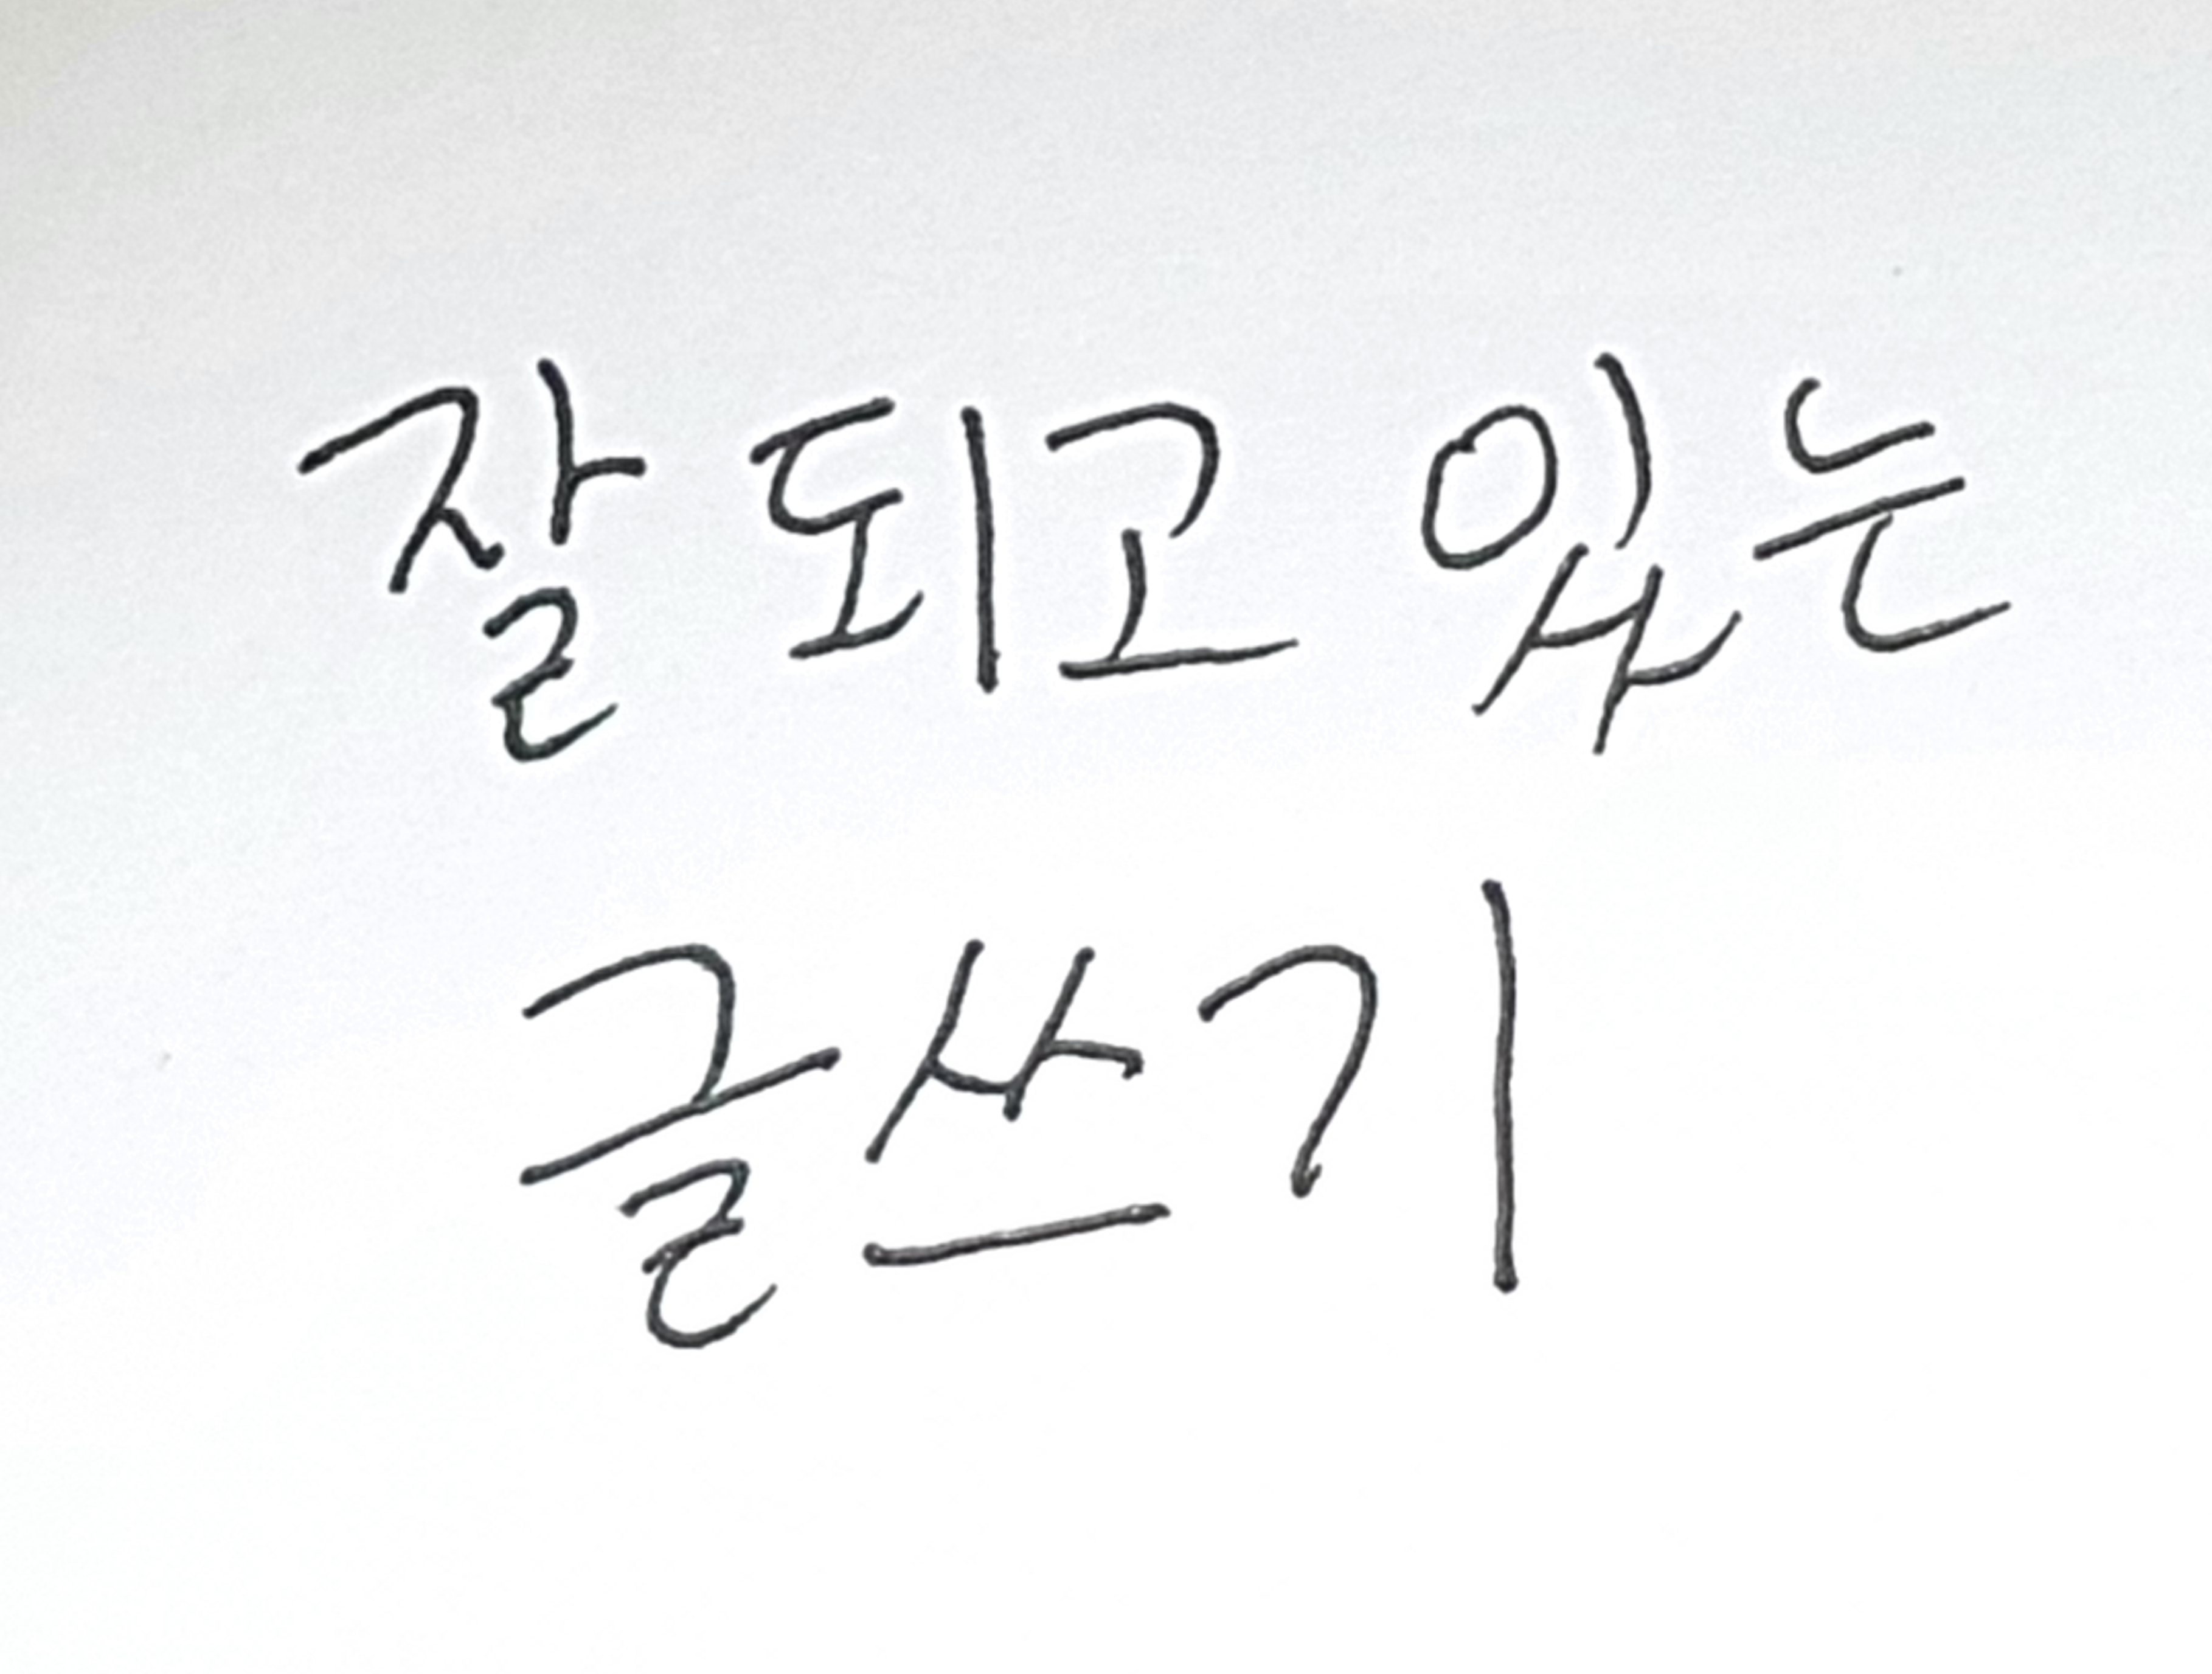 잘 되고 있는
글쓰기